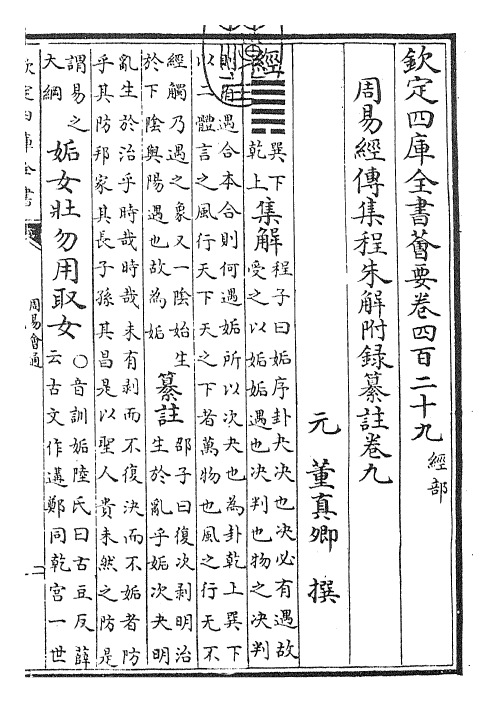 欽定四庫全書薈要卷四百二十九 經部
周易經傳集程朱解附錄纂註卷九
元 董真卿 撰
經 ䷫ 巽下
乾上
集解 程子曰姤序卦夬決也決必有遇故
受之以姤姤遇也決判也物之決判
則有遇合本合則何遇姤所以次夬也為卦乾上巽下
以二體言之風行天下天之下者萬物也風之行无不
經觸乃遇之象又一陰始生
於下陰與陽遇也故為姤
纂註 邵子曰復次剥明治
生於亂乎姤次夬明
亂生於治乎時哉時哉未有剥而不復決而不姤者防
乎其防邦家其長子孫其昌是以聖人貴未然之防是
謂易之
大綱
姤女壯勿用取女 ○音訓姤陸氏曰古豆反薛
云古文作遘鄭同乾宮一世
欽定四庫全書
周易會通